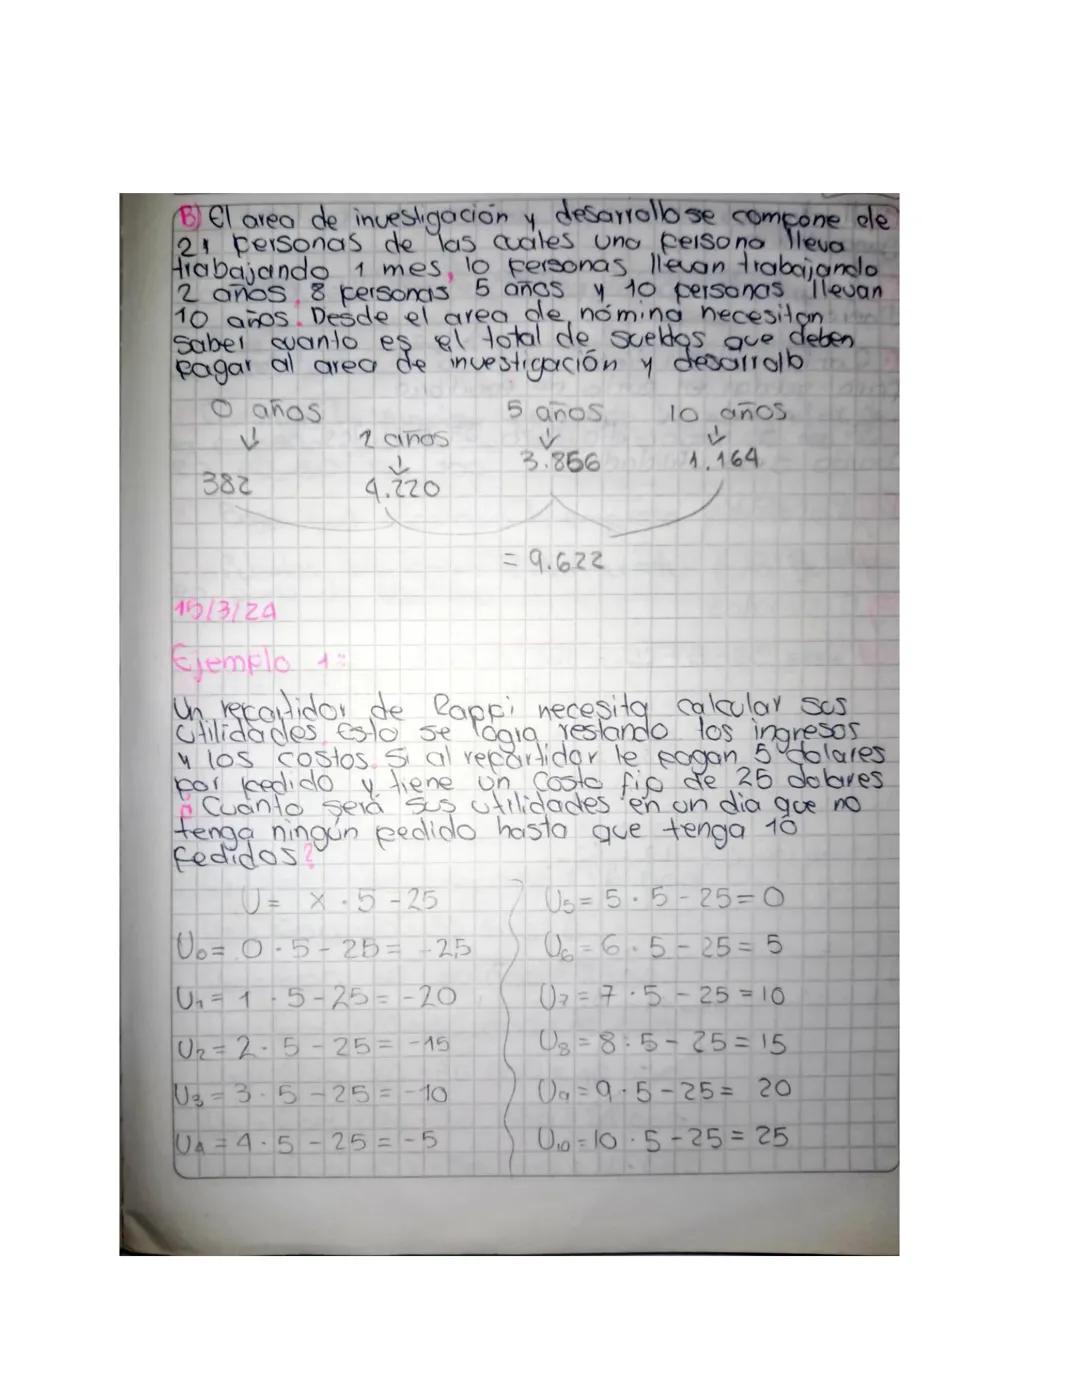 B) El area de investigación y desarrollo se compone de
21 personas de las cuales una persona lleva
trabajando 1 mes, 10 personas llevan trabajando
2 años, 8 personas 5 años y 10 personas llevan
10 años. Desde el area de nómina necesitan
saber cuanto es el total de sueldos que deben
pagar al area de investigación y desarrollo
0 años 5 años 10 años
2 años
382 4.220 3.856 1.164
= 9.622
15/3/24
Ejemplo 1:
Un repartidor de Rappi necesita calcular sus
utilidades, esto se logra restando los ingresos
y los costos. Si al repartidor le pagan 5 dolares
por pedido y tiene un costo fijo de 25 dolares
¿Cuanto será sus utilidades en un dia que no
tenga ningún pedido hasta que tenga 10
pedidos?
U = X · 5 - 25
U0 = 0 · 5 - 25 = -25
U1 = 1 · 5 - 25 = -20
U2 = 2 · 5 - 25 = -15
U3 = 3 · 5 - 25 = -10
U4 = 4 · 5 - 25 = -5
U5 = 5 · 5 - 25 = 0
U6 = 6 · 5 - 25 = 5
U7 = 7 · 5 - 25 = 10
U8 = 8 · 5 - 25 = 15
U9 = 9 · 5 - 25 = 20
U10 = 10 · 5 - 25 = 25